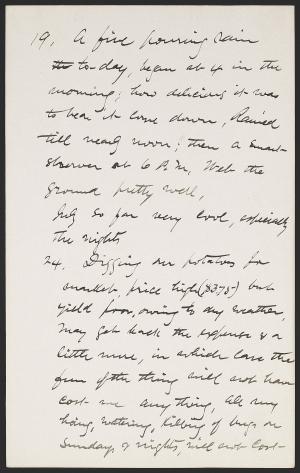 19. A fine pouring rain
to-day, began at 4 in the
morning; how delicious it was
to hear it come down, Rained
till nearly noon; then a smart
shower at 6 P.M. Wet the
ground pretty well,
July so far very cool, especially
the nights
24. Digging our potatoes for
market, price high ($3.75) but
yield poor, owing to dry weather,
May get back the expense & a
little more, in which case the
fun of the thing will not have
cost me any thing, All my
hoing, watering, killing of bugs on
Sundays, & nights, will not cost